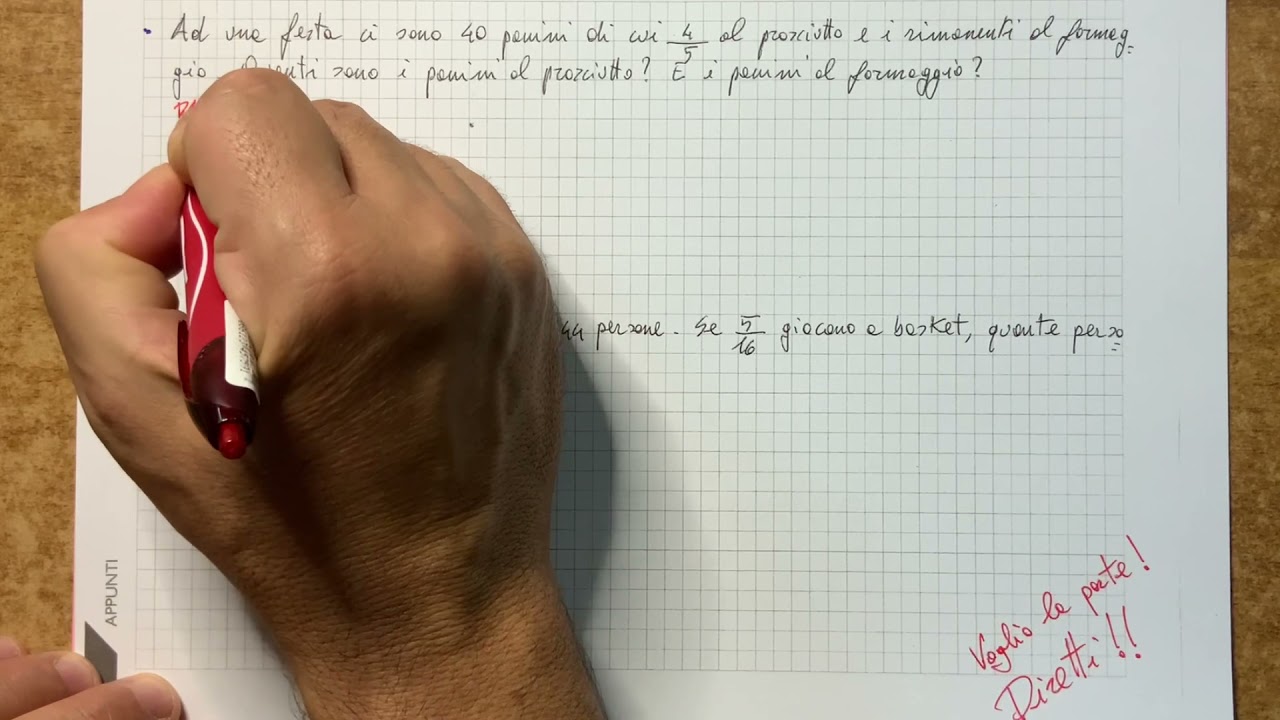 • Ad una festa ci sono 40 panini di cui 4/5 al prosciutto e i rimanenti al formag-
gio. Quanti sono i panini al prosciutto? E i panini al formaggio?
44 persone. Se 5/16 giocano a basket, quante perso
Voglio la parte!
Diretti!!
APPUNTI